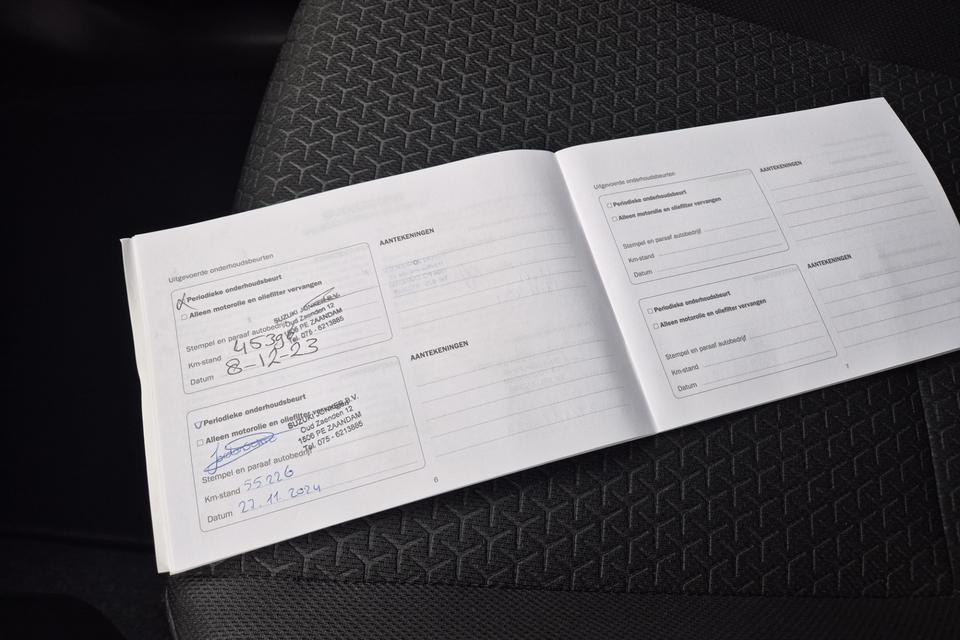 Uitgevoerde onderhoudsbeurten
Periodieke onderhoudsbeurt
Alleen motorolie en oliefilter vervangen
SUZUKI JONKER B.V.
Oud Zaenden 12
1506 PE ZAANDAM
Tel. 075 - 6213885
Stempel en paraaf autobedrijf
Km-stand
Datum 8-12-23
AANTEKENINGEN
Periodieke onderhoudsbeurt
Alleen motorolie en oliefilter vervangen
SUZUKI JONKER B.V.
Oud Zaenden 12
1506 PE ZAANDAM
Tel. 075 - 6213885
Stempel en paraaf autobedrijf
Km-stand 55226
Datum 27.11.2024
AANTEKENINGEN
6
Uitgevoerde onderhoudsbeurten
Periodieke onderhoudsbeurt
Alleen motorolie en oliefilter vervangen
Stempel en paraaf autobedrijf
Km-stand
Datum
AANTEKENINGEN
Periodieke onderhoudsbeurt
Alleen motorolie en oliefilter vervangen
Stempel en paraaf autobedrijf
Km-stand
Datum
AANTEKENINGEN
7